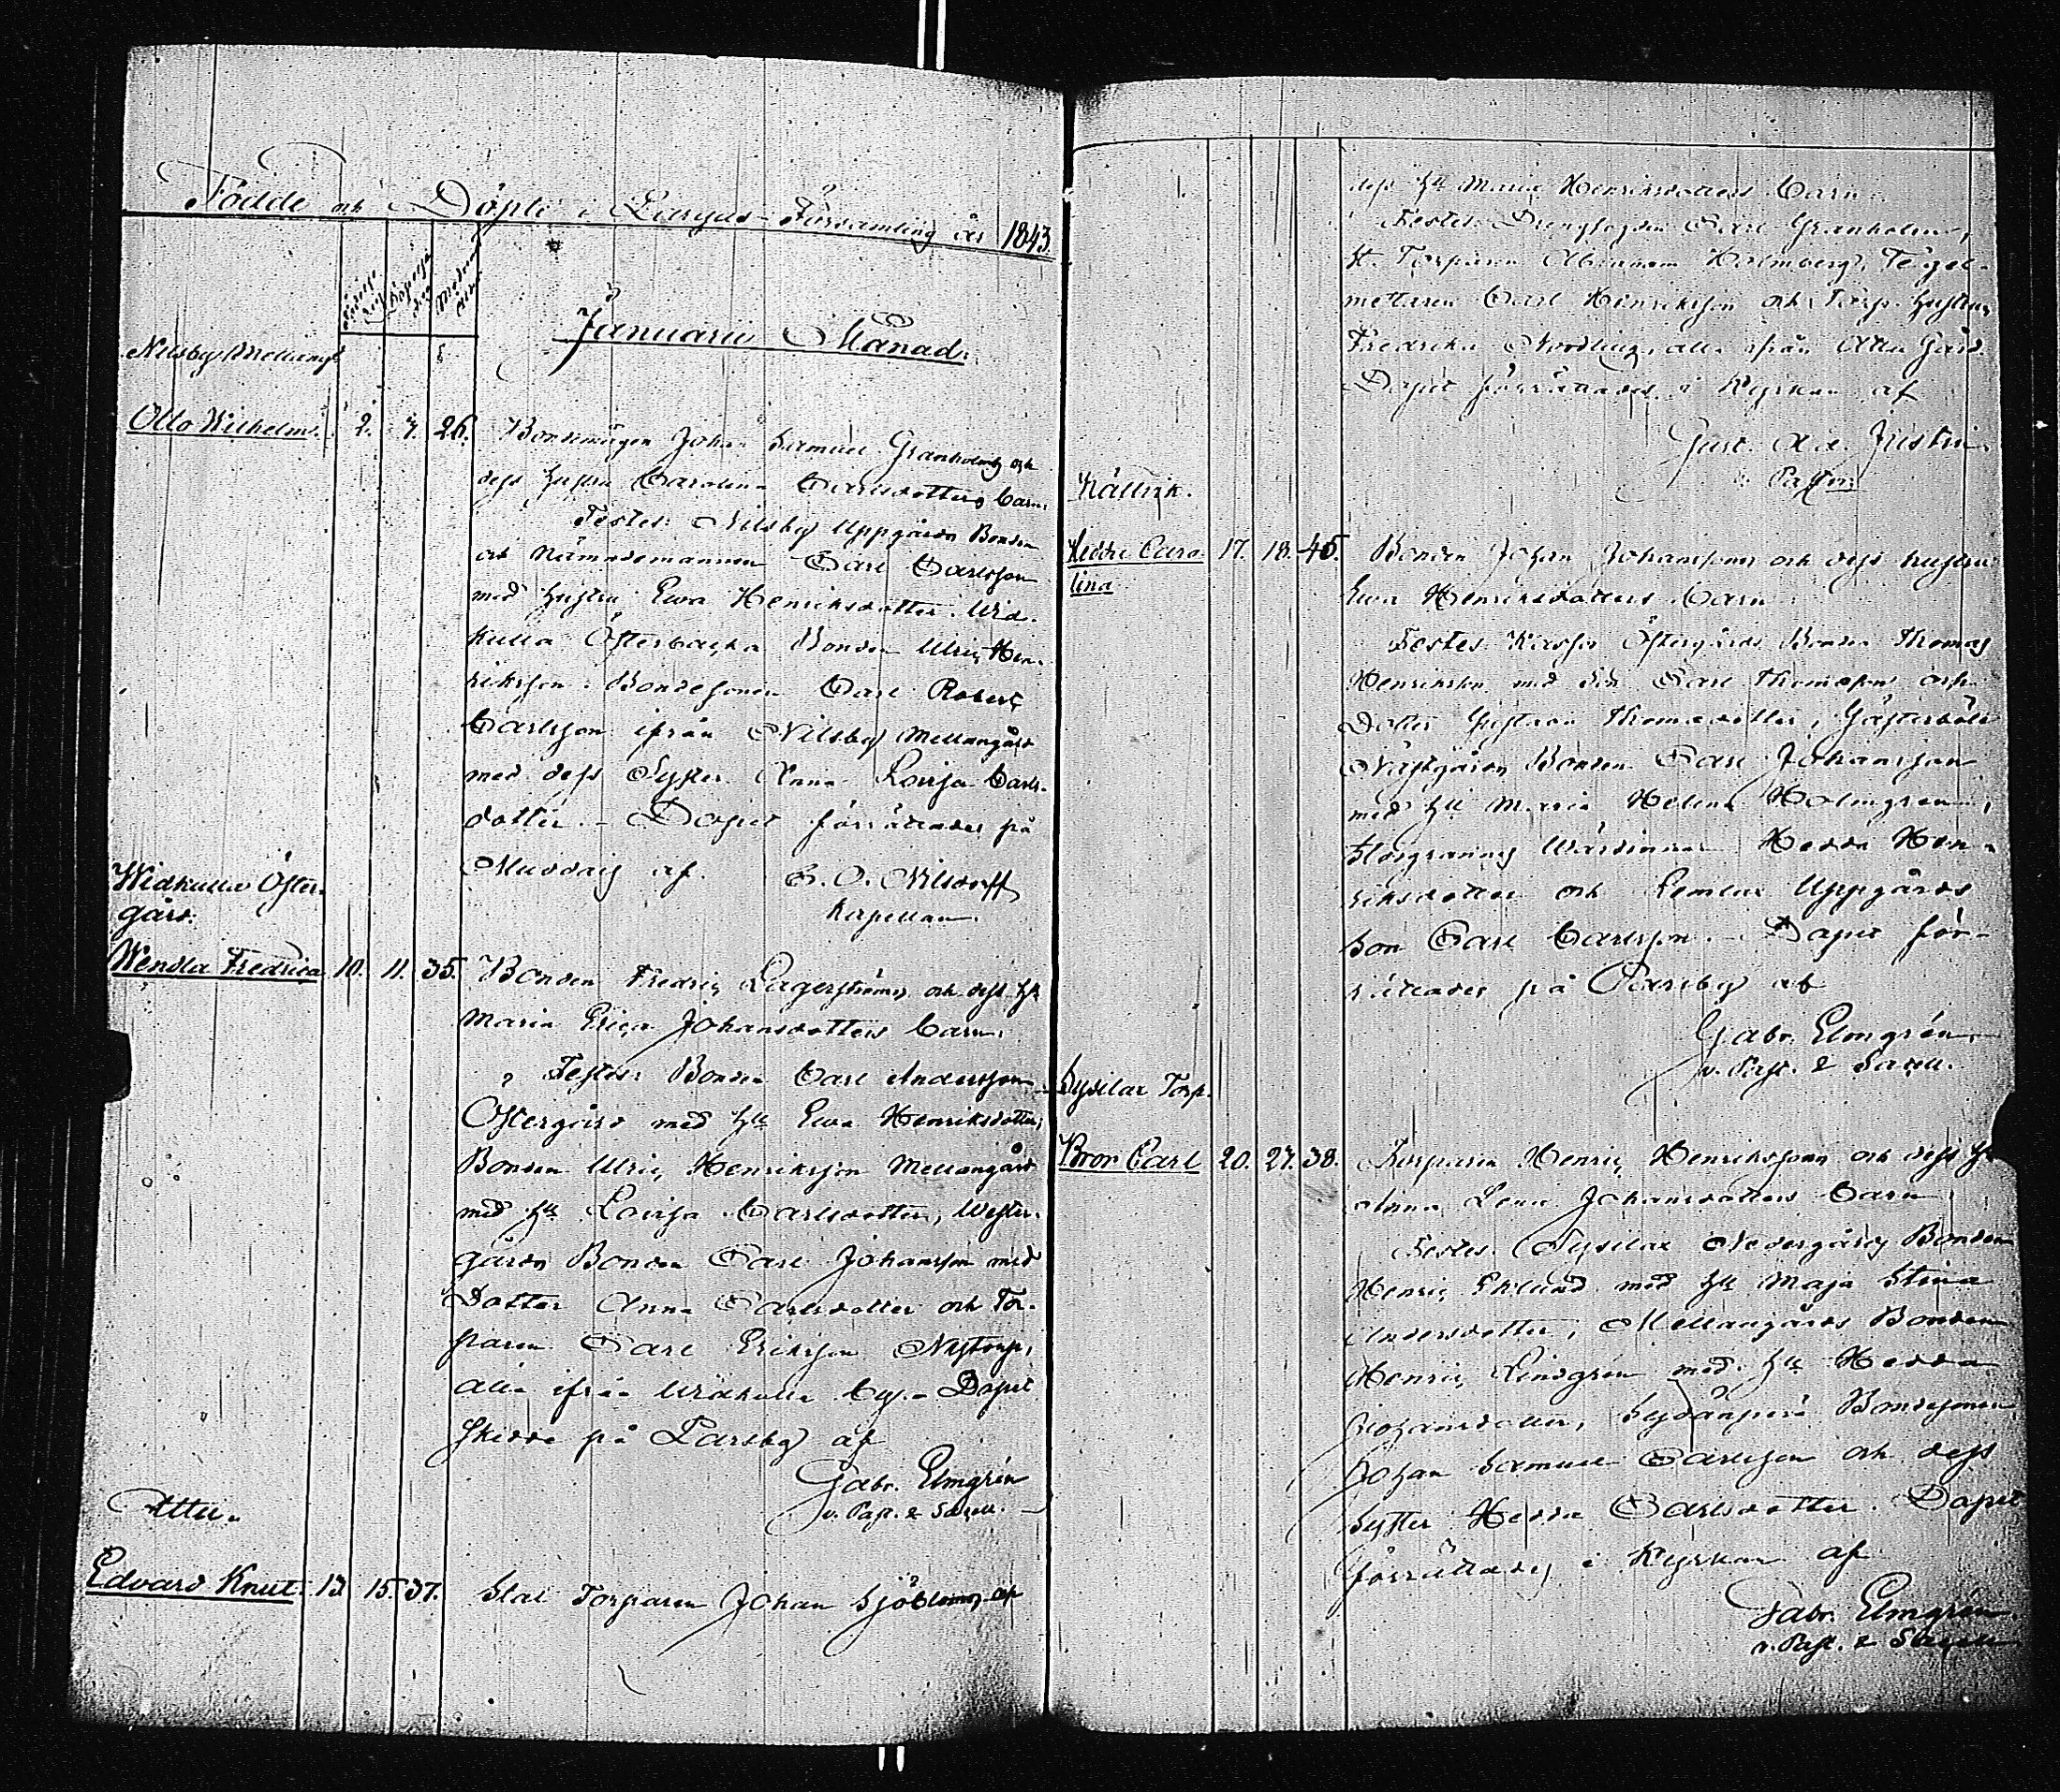 Födde och Döpte i Pargas Församling år 1843.
Födelse dag Döpelse dag Modrens ålder
Januarii Månad.
Nilsby Mellangd
Otto Wilhelm. 2. 7. 26. Bondemågen Johan Samuel Granholms och
dess hustru Carolina Carlsdotters barn.
Testes: Nilsby Uppgårds Bonden
och Nämndemannen Carl Carlsson
med hustru Ewa Henriksdotter. Wid-
kulla Österbacka Bonden Ulric Hen-
riksson. Bondesonen Carl Robert
Carlsson ifrån Nilsby Mellangård
med dess Syster Anna Lovisa Carls-
dotter. - Dopet förrättades på
Muddais af G. O. Nilsdorff
Kapellan.
Widkulla Öster-
gård.
Wendla Fredrica 10. 11. 35. Bonden Fredric Lagerströms och dess h:u
Maria Erica Johansdotters barn.
Testes: Bonden Carl Andersson
Östergård med h:u Ewa Henriksdotter,
Bonden Ulric Henriksson Mellangård
med h:u Lovisa Carlsdotter, Wester-
gårds Bonden Carl Johansson med
Dotter Anna Carlsdotter och Tor-
paren Carl Eriksson Nystorp,
alla ifrån Widkulla by. - Dopet
skedde på Parsby af
Gabr. Elmgrén
v. Past. & Sacell.
Attu.
Edvard Knut. 13. 15. 37. Stat Torparen Johan Sjöbloms och
dess h:u Maria Henriksdotters barn.
Testes: Drengfogden Carl Granholm,
St. Torparen Abraham Holmberg, Tegel-
mettaren Carl Henriksson och Torp. hustrun
Fredrika Nordling, alla ifrån Attu Gård.
Dopet förrättades i Kyrkan af
Gust. Ad. Justin
Pastor
Källvik.
Hedda Caro- 17. 18. 45. Bonden Johan Johanssons och dess hustru
lina
Ewa Henriksdotters barn
Testes: Kassor Östergårds Bonden Thomas
Henriksson med son Carl Thomasson och
Dotter Gustava Thomasdotter, Gästerböle
Nästgårds Bonden Carl Johansson
med h:u Maria Helena Holmgren,
Storgrannas Wärdinnan Hedda Hen-
riksdotter och Lemlax Uppgårds
Son Carl Carlsson. - Dopet för-
rättades på Parsby af
Gabr. Elmgrén
v. Past. & Sacell.
Sydilax Torp.
Bror Carl 20. 27. 38. Torparen Henric Henrikssons och dess h:u
Anna Lena Johansdotters barn
Testes: Sydilax Nedergårds Bonden
Henric Eklund med h:u Maja Stina
Andersdotter, Mellangårds Bonden
Henric Lindgren med h:u Hedda
Johansdotter, Bondesonen
Johan Samuel Carlsson och dess
Syster Hedda Carlsdotter. Dopet
förrättades i Kyrkan af
Gabr. Elmgrén
v. Past. & Sacell.